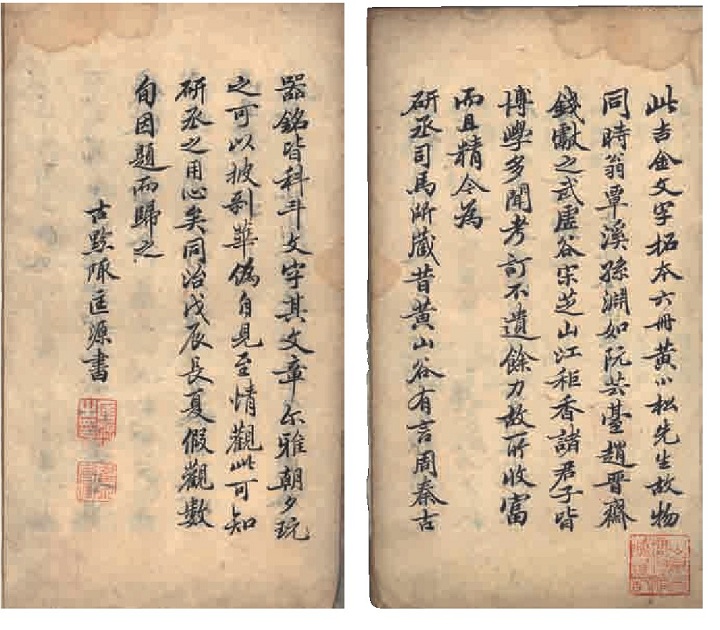 此吉金文字拓本六冊黄小松先生故物
同時翁覃溪孫淵如阮芸臺趙晉齋
錢獻之武虛谷宋芝山江秬香諸君子皆
博學多聞考訂不遺餘力故所收富
而且精今為
研丞司馬所藏昔黄山谷有言周秦古
器銘皆科斗文字其文章尔雅朝夕玩
之可以披剥華偽自見至情觀此可知
研丞之用心矣同治戊辰長夏假觀數
旬因題而歸之
古黟 匡源書